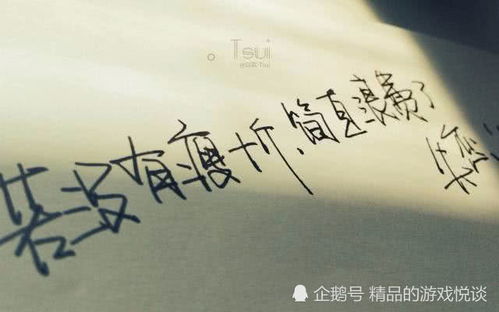 Tsui
若没有瘦十斤、简直浪费了失恋
企鹅号 精品的游戏悦谈